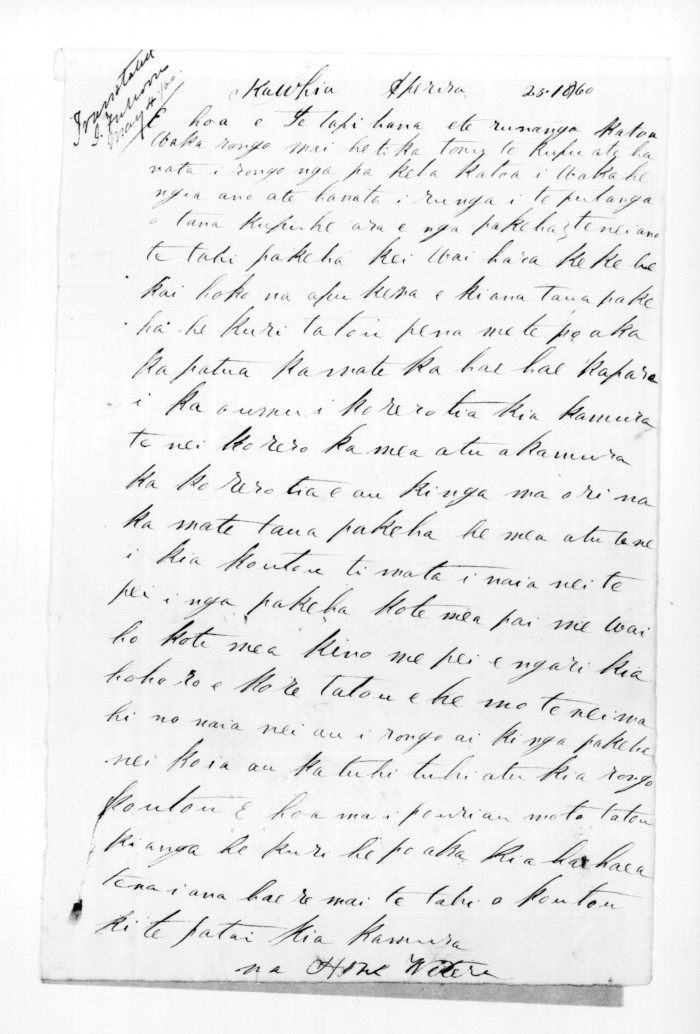 Translated
May 4/60
Kawhia Aperira 25-1860
E hoa e Te tapihana ete runanga katoa
Waka rongo mai he tika tonu te kupu ate ha
nata i rongo nga pakeha katoa i Waka he
ngia ano ate hanata i runga i te putanga
o tana kupu he ara e nga pakeha tenei ano
te tahi pakeha kei Wai hara keke he
kai hoko na apukena e ki ana taua pake
ha he kuri tatou pena me te poaka
ka patua ka mate ka hae hae kapara
i ka aumu i korero tia kia kamura
te nei korero ka mea atu akamura
ka korero tia e au kinga ma ori na
ka mate taua pakeha he mea atu tene
i kia koutou ti mata i naia nei te
pei i nga pakeha kote mea pai me wai
ho kote mea kino me pei e ngari kia
hoho ro e kore tatou e he mo te nei ma
hi no naia nei au i rongo ai ki nga pakeha
nei koia au ka tuhi tuhi atu kia rongo
koutou E hoa ma i pouri au moto tatou
ki anga he kuri he poaka kia hae haea
tena i ana hae re mai te tahi o koutou
ki te patai kia kamura
na Hone Wetere